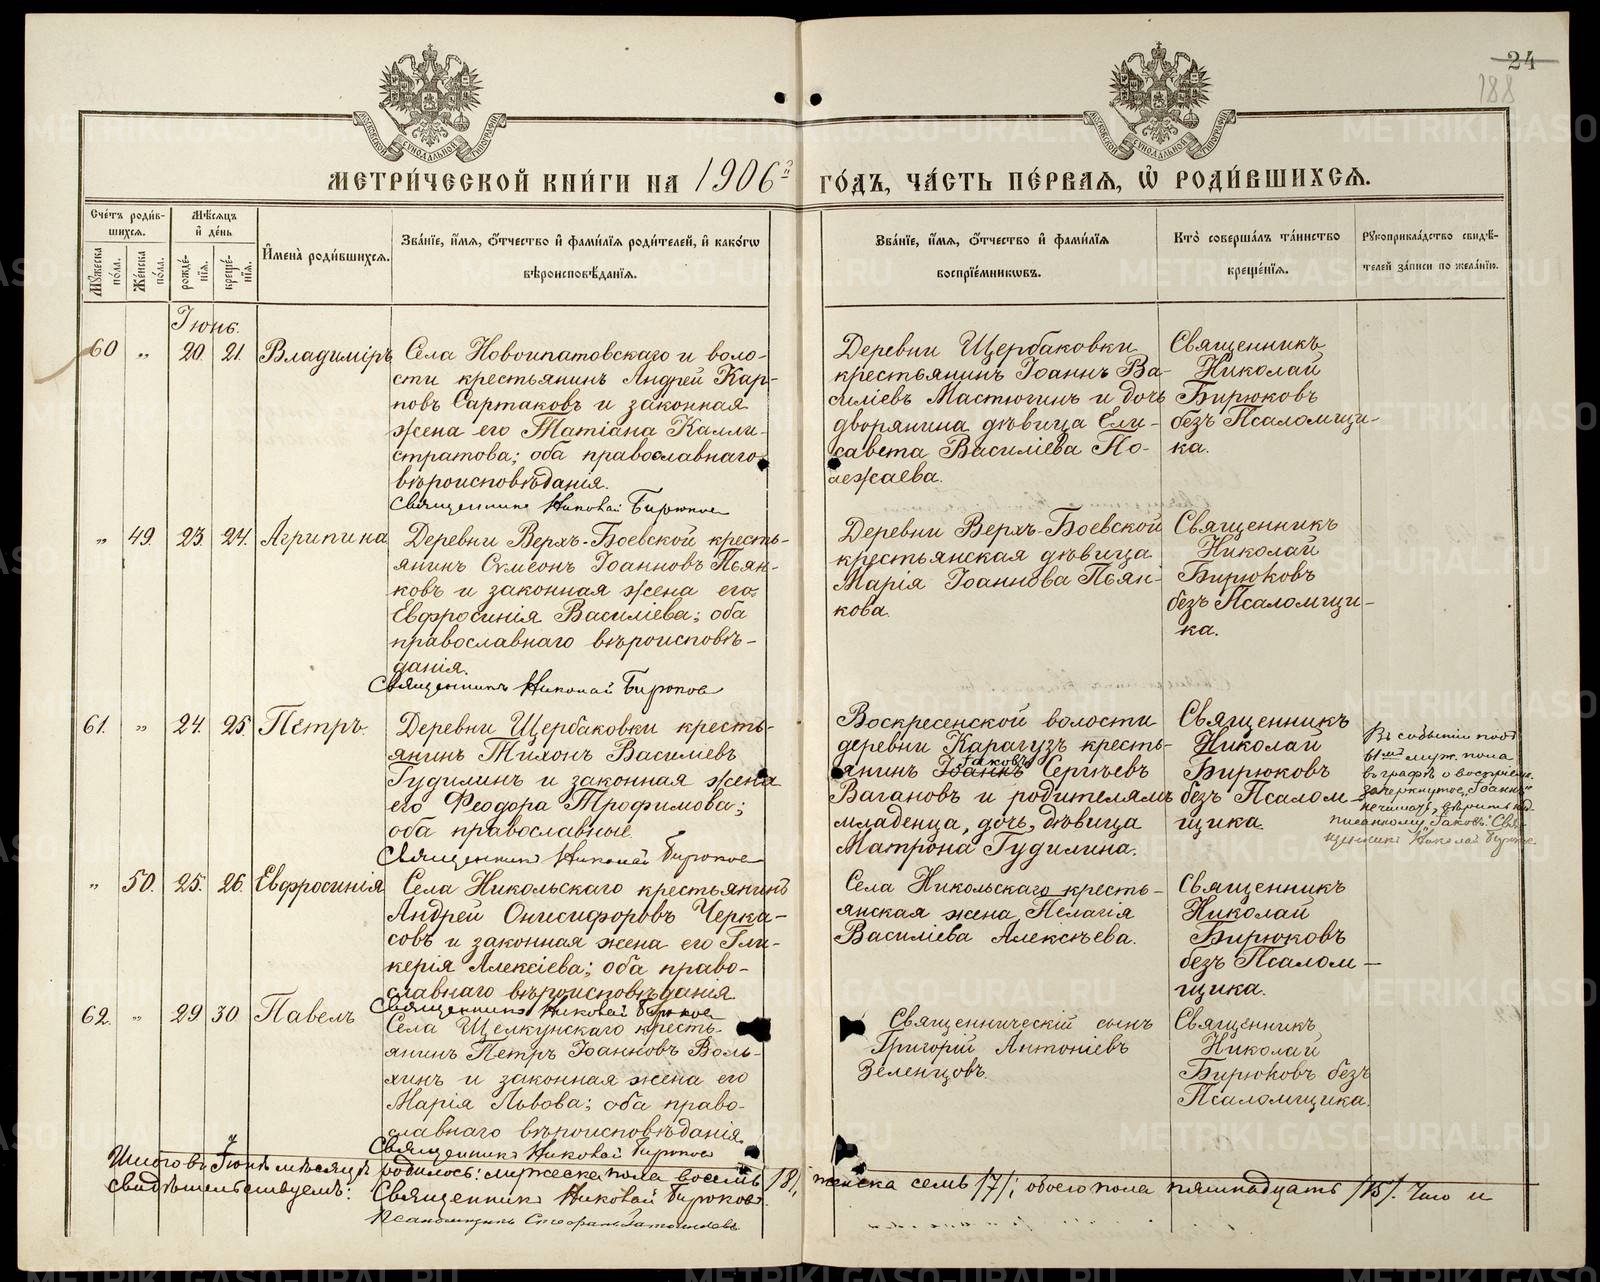 24
188
МЕТРИ́ЧЕСКОЙ КНИ́ГИ НА 1906й ГО́ДЪ, ЧА́СТЬ ПЕ́РВАЯ, Ѡ РОДИ́ВШИХСЯ.
Сче́тъ роди́в-
шихся.
Мꙋ́жеска по́ла.
Же́нска по́ла.
Мѣ́сяцъ
и҆ де́нь
рожде́-
нїя.
креще́-
нїя.
И҆мена̀ роди́вшихся.
Зва́нїе, и҆́мя, ѻ҆́тчество и҆ фами́лїя роди́телей, и҆ како́гѡ
вѣроисповѣ́данїя.
Зва́нїе, и҆́мя, ѻ҆́тчество и҆ фами́лїя
воспрїе́мникѡвъ.
Кто̀ соверша́лъ та́инство
креще́нїя.
Рꙋкоприкла́дство свидѣ́-
телей за́писи по жела́нїю.
Іюнь.
60 „ 20. 21. Владиміръ
Села Новоипатовскаго и воло-
сти крестьянинъ Андрей Кар-
повъ Сартаковъ и законная
жена его Татіана Калли-
стратова; оба православнаго
вѣроисповѣданія.
Священникъ Николай Бирюков
Деревни Щербаковки
крестьянинъ Іоаннъ Ва-
силіевъ Мастюгинъ и дочь
дворянина дѣвица Ели-
савета Василіева По-
лежаева.
Священникъ
Николай
Бирюковъ
безъ Псаломщи-
ка.
„ 49. 23. 24. Агрипина
Деревни Верхъ-Боевской кресть-
янинъ Сѵмеонъ Іоанновъ Пьян-
ковъ и законная жена его
Евфросинія Василіева; оба
православнаго вѣроисповѣ-
данія.
Священникъ Николай Бирюков
Деревни Верхъ-Боевской
крестьянская дѣвица
Марія Іоаннова Пьян-
кова.
Священникъ
Николай
Бирюковъ
безъ Псаломщи-
ка.
61. „ 24. 25. Петръ.
Деревни Щербаковки кресть-
янинъ Тихонъ Василіевъ
Гудилинъ и законная жена
его Феодора Трофимова;
оба православные.
Священникъ Николай Бирюков
Воскресенской волости
деревни Карагузъ кресть-
Іаковъ
янинъ Іоаннъ Сергѣевъ
Вагановъ и родителямъ
младенца, дочь, дѣвица
Матрона Гудилина.
Священникъ
Николай
Бирюковъ
безъ Псалом-
щика.
Въ событіи подъ
61ымъ муж. пола
въ графѣ о воспріем.
зачеркнутое „Іоаннъ"
не читать, вѣрить над-
писанному „Іаковъ". Свя-
щенникъ Николай Бирюков
„ 50. 25. 26. Евфросинія
Села Никольскаго крестьянинъ
Андрей Онисифоровъ Черка-
совъ и законная жена его Гли-
керія Алексіева; оба право-
славнаго вѣроисповѣданія.
Священникъ Николай Бирюков
Села Никольскаго кресть-
янская жена Пелагія
Василіева Алексѣева.
Священникъ
Николай
Бирюковъ
безъ Псалом-
щика.
62. „ 29 30 Павелъ
Села Щелкунскаго кресть-
янинъ Петръ Іоанновъ Воль-
хинъ и законная жена его
Марія Львова; оба право-
славнаго вѣроисповѣданія.
Священникъ Николай Бирюков
Священническій сынъ
Григорій Антоніевъ
Зеленцовъ.
Священникъ
Николай
Бирюковъ безъ
Псаломщика.
Итого въ Іюнѣ мѣсяцѣ родилось: мужеска пола восемь /8/, женска семь /7/; обоего пола пятнадцать /15/. Чего и
свидѣтельствуемъ: Священникъ Николай Бирюков.
Псаломщикъ Стефанъ
METRIKI.GASO-URAL.RU